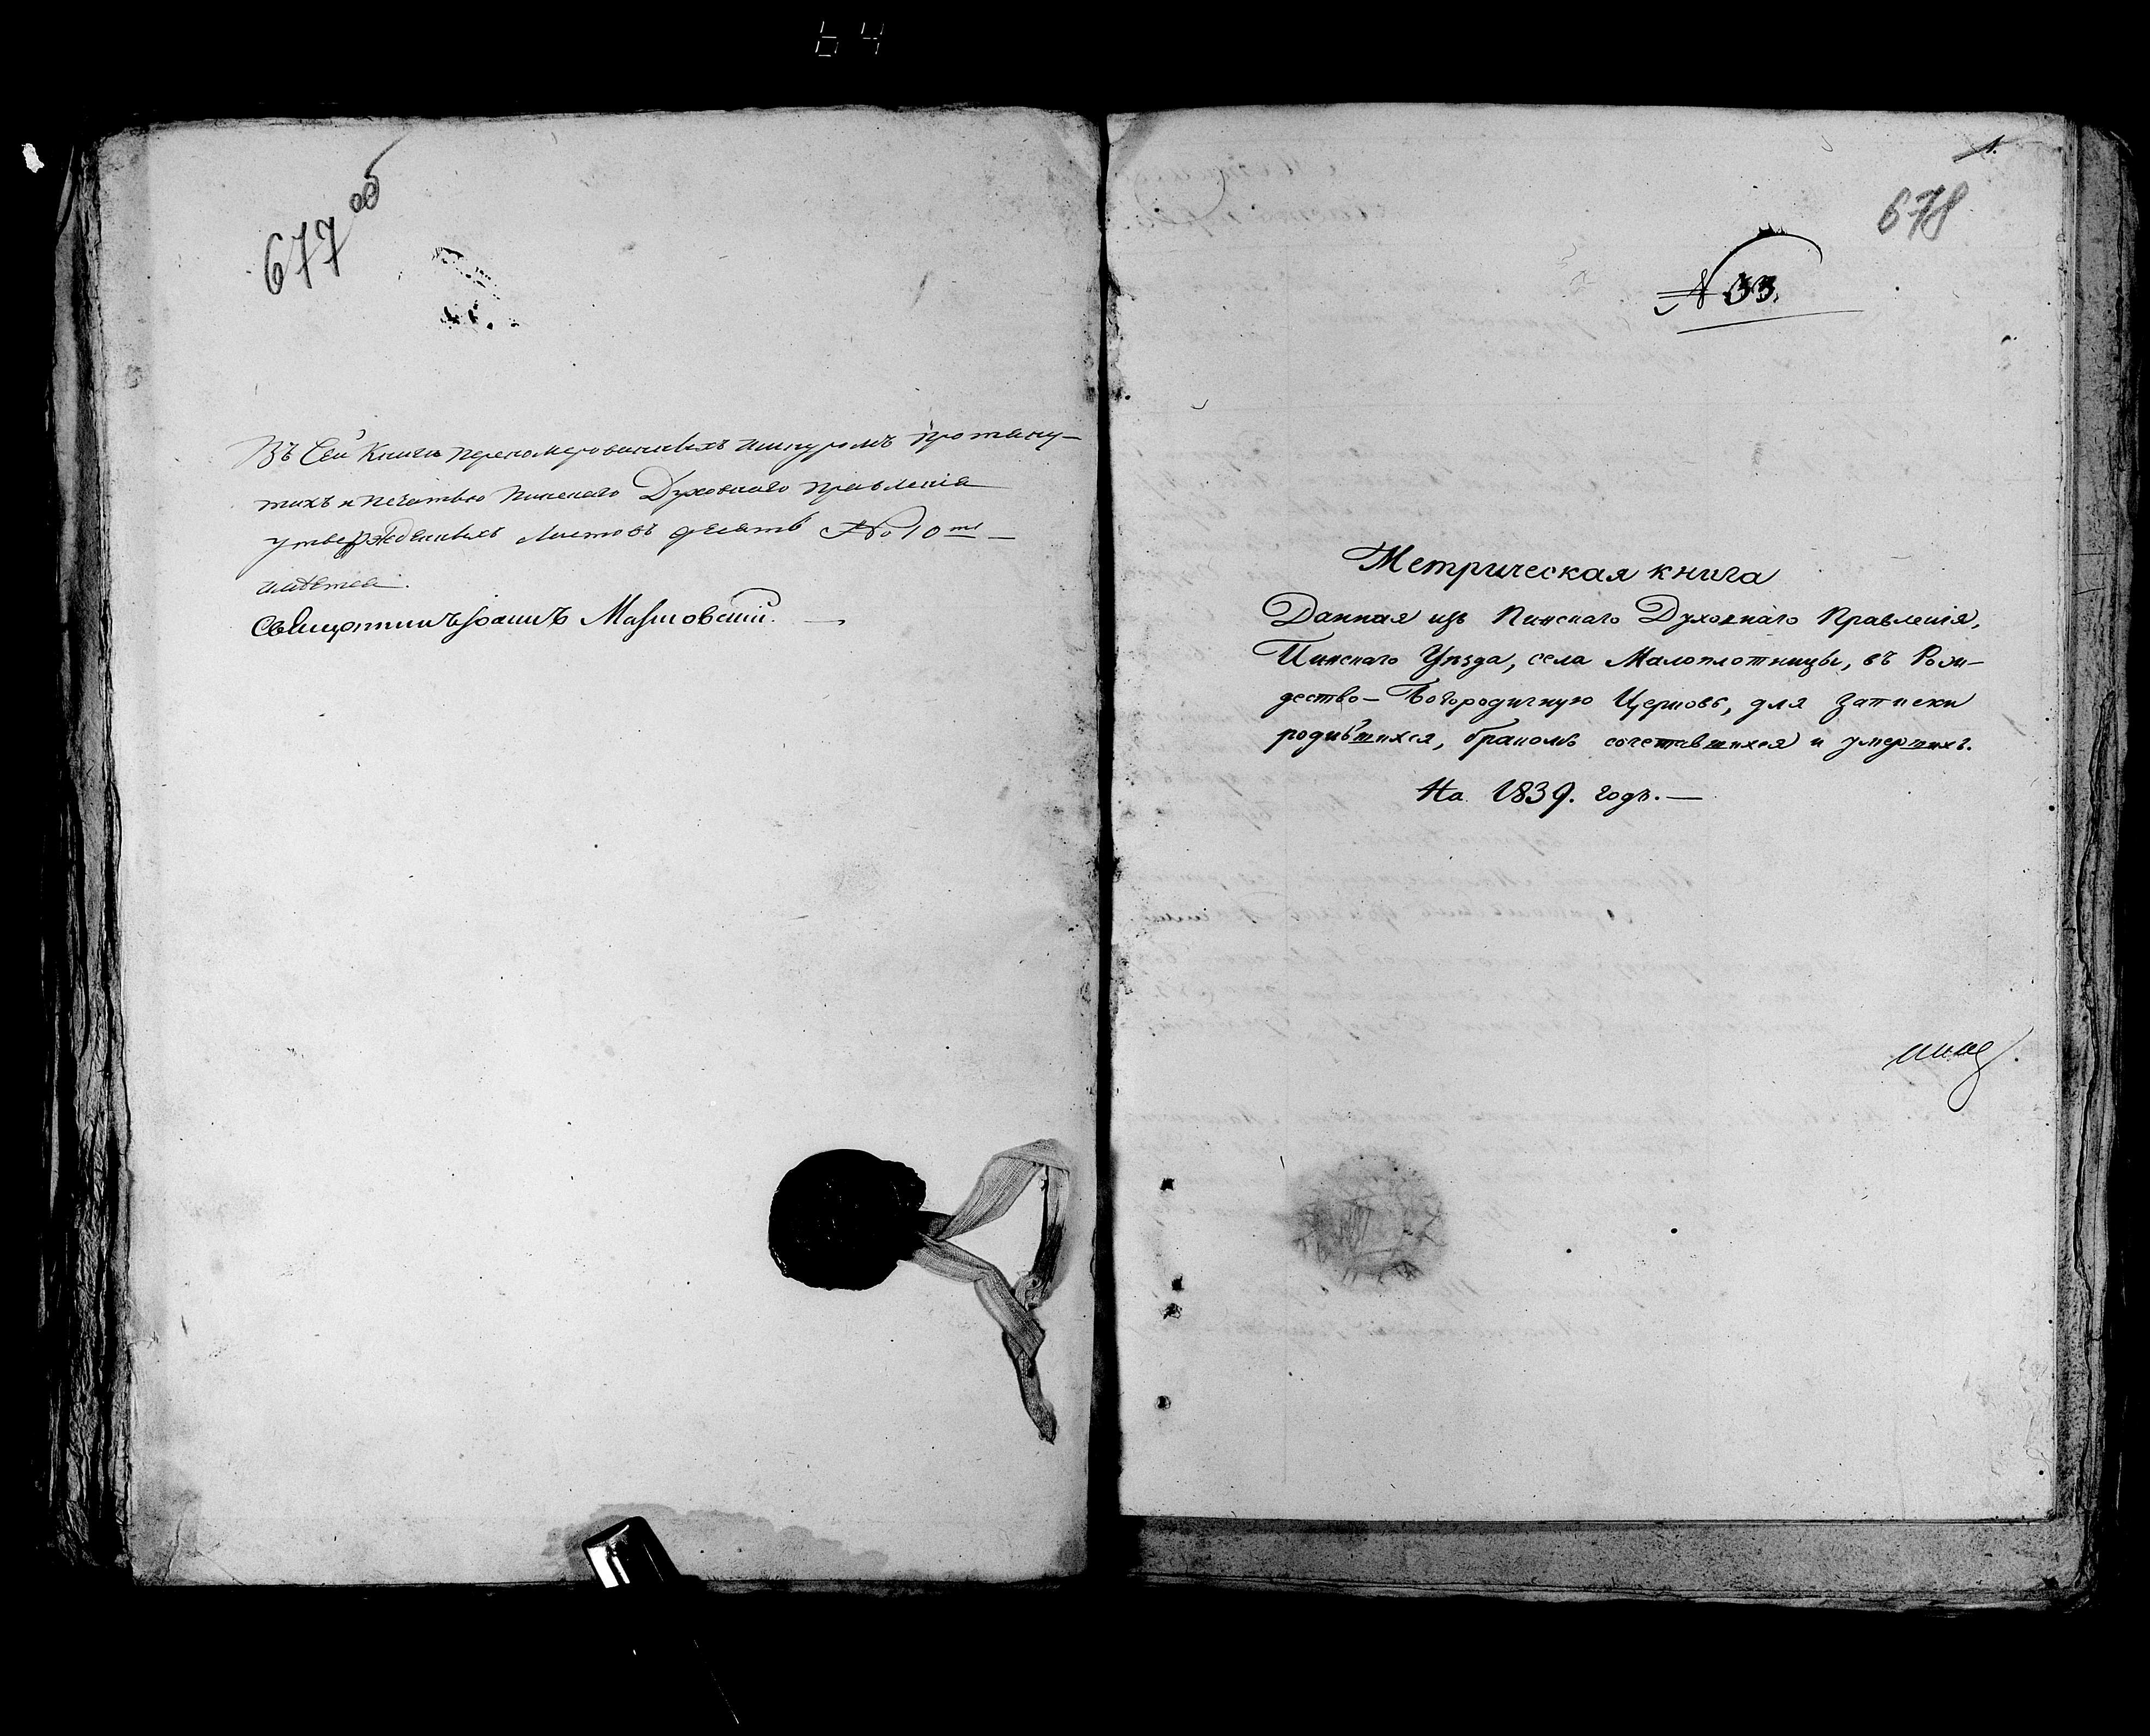 64
677 об
Въ Сей Книгѣ перенумерованныхъ шнуромъ протяну-
тыхъ и печатью Пинскаго Духовнаго Правленія
утвержденныхъ листовъ десять № 10 ть
имѣется.
Священникъ Іоаннъ
1.
678
№ 33.
Метрическая книга
Данная изъ Пинскаго Духовнаго Правленія,
Пинскаго Уѣзда, села Малоплотницы, въ Рож-
дество-Богородичную Церковь, для записки
родившихся, бракомъ сочетавшихся и умершихъ.
На 1839. годъ.—